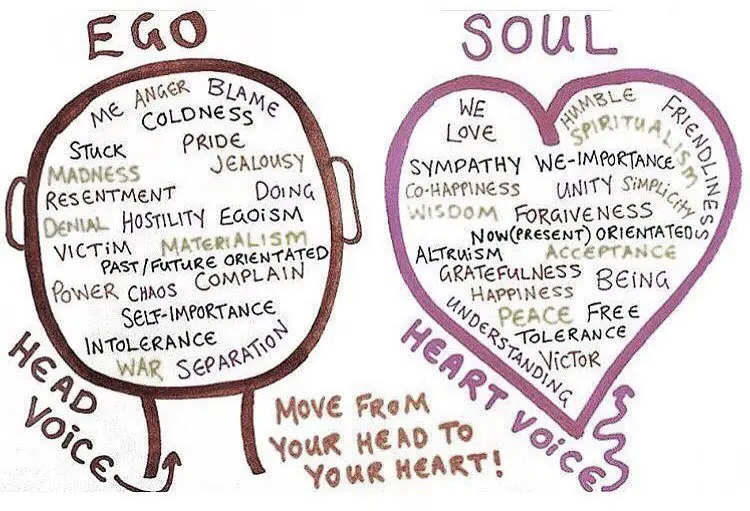 EGO
ME ANGER BLAME
COLDNESS
STUCK PRIDE
MADNESS JEALOUSY
RESENTMENT DOING
DENIAL HOSTILITY EGOISM
VICTIM MATERIALISM
PAST/FUTURE ORIENTATED
POWER CHAOS COMPLAIN
SELF-IMPORTANCE
INTOLERANCE
WAR SEPARATION
HEAD
VOICE
SOUL
WE
LOVE
HUMBLE
SPIRITUALISM
FRIENDLINESS
SYMPATHY WE-IMPORTANCE
CO-HAPPINESS UNITY SIMPLICITY
WISDOM FORGIVENESS
NOW(PRESENT) ORIENTATED
ALTRUISM ACCEPTANCE
GRATEFULNESS BEING
HAPPINESS
PEACE FREE
UNDERSTANDING
TOLERANCE
VICTOR
HEART VOICE
MOVE FROM
YOUR HEAD TO
YOUR HEART!